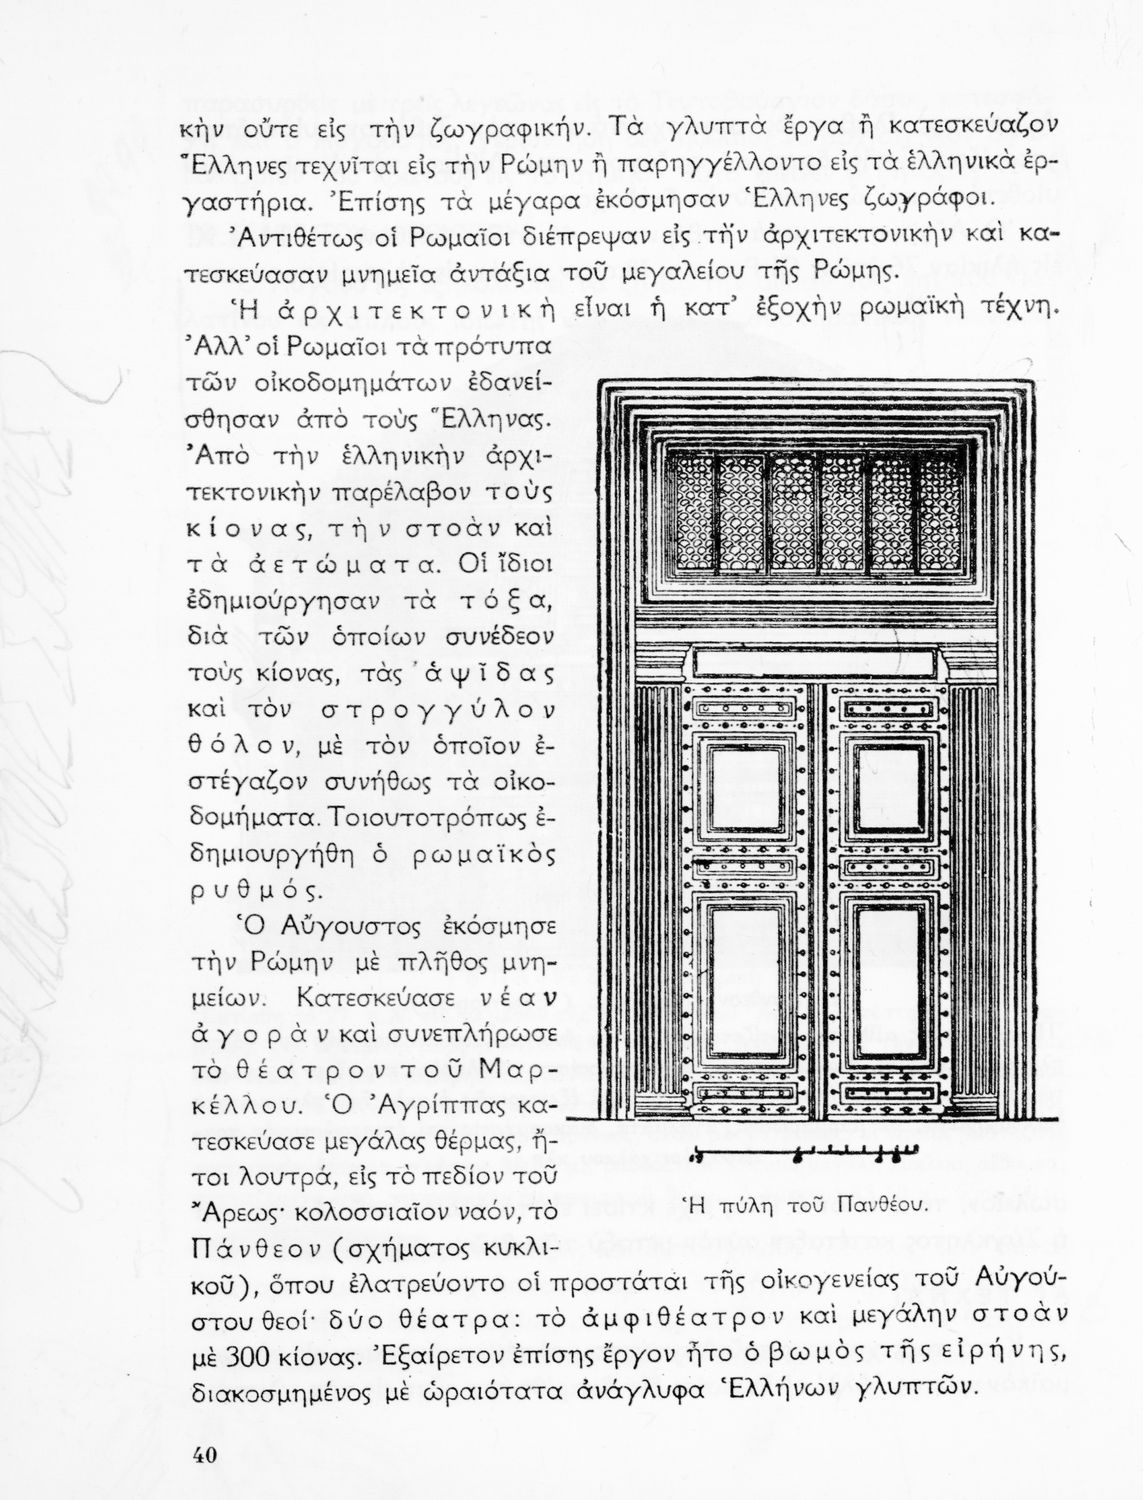 κὴν οὔτε εἰς τὴν ζωγραφικήν. Τὰ γλυπτὰ ἔργα ἢ κατεσκεύαζον
Ἕλληνες τεχνῖται εἰς τὴν Ρώμην ἢ παρηγγέλλοντο εἰς τὰ ἑλληνικὰ ἐρ-
γαστήρια. Ἐπίσης τὰ μέγαρα ἐκόσμησαν Ἕλληνες ζωγράφοι.
Ἀντιθέτως οἱ Ρωμαῖοι διέπρεψαν εἰς τὴν ἀρχιτεκτονικὴν καὶ κα-
τεσκεύασαν μνημεῖα ἀντάξια τοῦ μεγαλείου τῆς Ρώμης.
Ἡ ἀρχιτεκτονικὴ εἶναι ἡ κατ’ ἐξοχὴν ρωμαϊκὴ τέχνη.
Ἀλλ’ οἱ Ρωμαῖοι τὰ πρότυπα
τῶν οἰκοδομημάτων ἐδανεί-
σθησαν ἀπὸ τοὺς Ἕλληνας.
Ἀπὸ τὴν ἑλληνικὴν ἀρχι-
τεκτονικὴν παρέλαβον τοὺς
κίονας, τὴν στοὰν καὶ
τὰ ἀετώματα. Οἱ ἴδιοι
ἐδημιούργησαν τὰ τόξα,
διὰ τῶν ὁποίων συνέδεον
τοὺς κίονας, τὰς ἁψῖδας
καὶ τὸν στρογγύλον
θόλον, μὲ τὸν ὁποῖον ἐ-
στέγαζον συνήθως τὰ οἰκο-
δομήματα. Τοιουτοτρόπως ἐ-
δημιουργήθη ὁ ρωμαϊκὸς
ρυθμός.
Ὁ Αὔγουστος ἐκόσμησε
τὴν Ρώμην μὲ πλῆθος μνη-
μείων. Κατεσκεύασε νέαν
ἀγορὰν καὶ συνεπλήρωσε
τὸ θέατρον τοῦ Μαρ-
κέλλου. Ὁ Ἀγρίππας κα-
τεσκεύασε μεγάλας θέρμας, ἤ-
τοι λουτρά, εἰς τὸ πεδίον τοῦ
Ἄρεως· κολοσσιαῖον ναόν, τὸ
Πάνθεον (σχήματος κυκλι-
κοῦ), ὅπου ἐλατρεύοντο οἱ προστάται τῆς οἰκογενείας τοῦ Αὐγού-
στου θεοί· δύο θέατρα: τὸ ἀμφιθέατρον καὶ μεγάλην στοὰν
μὲ 300 κίονας. Ἐξαίρετον ἐπίσης ἔργον ἦτο ὁ βωμὸς τῆς εἰρήνης,
διακοσμημένος μὲ ὡραιότατα ἀνάγλυφα Ἑλλήνων γλυπτῶν.
Ἡ πύλη τοῦ Πανθέου.
40